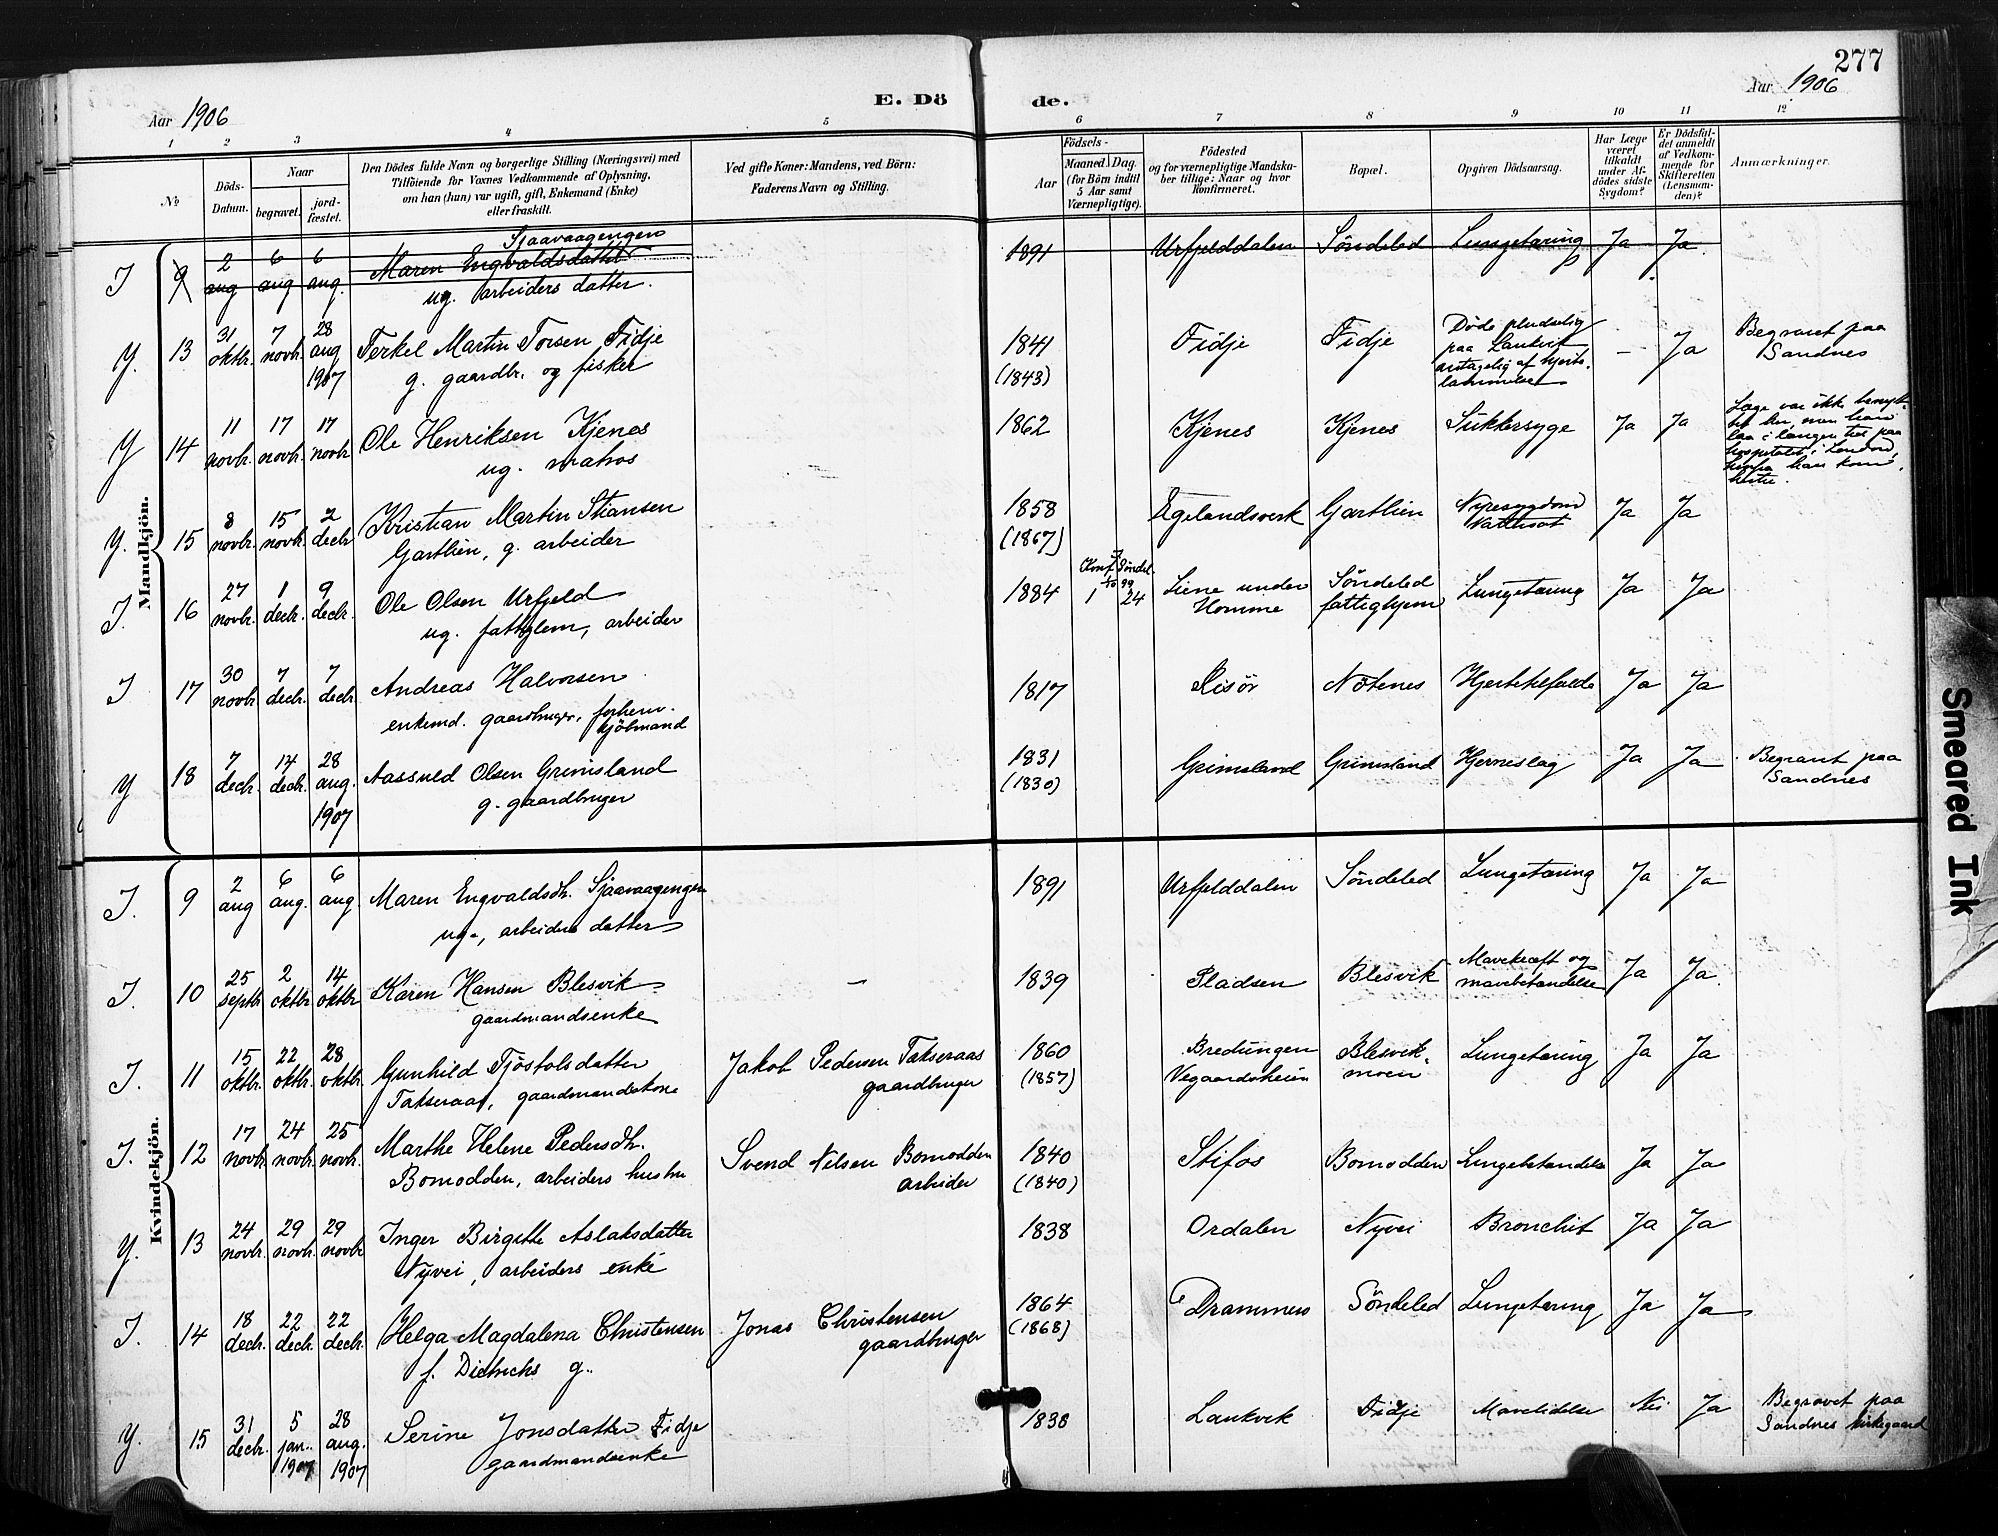 277
Aar 1906
E. Dö
de.
Aar 1906
1 2 3 4 5 6 7 8 9 10 11 12
№
Döds-
Datum.
Naar
begravet.
jord-
fæstet.
Den Dödes fulde Navn og borgerlige Stilling (Næringsvei) med
Tilföiende for Voxnes Vedkommende af Oplysning,
om han (hun) var ugift, gift, Enkemand (Enke)
eller fraskilt.
Ved gifte Koner: Mandens, ved Börn:
Faderens Navn og Stilling.
Födsels-
Aar
Maaned. Dag.
(for Börn indtil
5 Aar samt
Værnepligtige).
Födested
og for værnepligtige Mandska-
ber tillige: Naar og hvor
Konfirmeret.
Bopæl.
Opgiven Dödsaarsag.
Har Læge
været
tilkaldt
under Af-
dödes sidste
Sygdom?
Er Dödsfal-
det anmeldt
af Vedkom-
mende for
Skifteretten
(Lensman-
den)?
Anmærkninger.
Mandkjön.
I 9 2 aug 6 aug 6 aug. Maren Engvaldsdatter Sjaavaagengen
ug. arbeiders datter.
1891 Urfjelddalen Söndeled Lungetæring Ja Ja.
Y. 13 31 oktbr. 7 novbr. 28 aug 1907 Terkel Martin Torsen Fidje
g. gaardbr. og fisker
1841 (1843) Fidje Fidje Döde pludselig
paa Lankvik
antagelig af hjerte-
lammelse
— Ja Begravet paa
Sandnes
Y 14 11 novbr. 17 novbr. 17 novbr Ole Henriksen Kjenes
ug. matros
1862 Kjenes Kjenes Sukkersyge Ja Ja Læge var ikke benyt-
tet her, men han
laa i længere tid paa
hospitalet i London,
hvorfra han kom
Y. 15 8 novbr. 15 novbr. 2 decbr Kristian Martin Stiansen
Garthien, g. arbeider
1858 (1867) Egelandsverk Garthien Nyresygdom
Vattersot Ja Ja
I. 16 27 novbr. 1 decbr. 9 decbr. Ole Olsen Urfjeld
ug. fattiglem, arbeider
1884 Konf. Söndel. 99
1 24 Liene under
Homme Söndeled
fattighjem Lungetæring Ja Ja
I 17 30 novbr 7 decbr. 7 decbr. Andreas Halvorsen
enkemd. gaardbruger, forhenv.
kjöbmand
1817 Risör Nötenes Hjertetilfælde Ja Ja
Y 18 7 decbr. 14 decbr. 28 aug. 1907 Aassuld Olsen Grimsland
g. gaardbruger
1831 (1830) Grimsland Grimsland Hjerneslag Ja Ja Begravet paa
Sandnes
Kvindekjön.
I. 9 2 aug 6 aug. 6 aug. Maren Engvaldsdtr. Sjaavaagengen
ug., arbeiders datter
1891 Urfjelddalen Söndeled Lungetæring Ja Ja
I. 10 25 septbr 2 oktbr 14 oktbr Karen Hansen Blesvik
gaardmandsenke
— 1839 Pladsen Blesvik Mavekræft og
mavebetændelse Ja Ja.
I. 11 15 oktbr. 22 oktbr. 28 oktbr. Gunhild Tjöstolsdatter
Takseraas, gaardmandskone
Jakob Pedersen Takseraas
gaardbruger
1860 (1857) Bredungen
Vegaardsheien Blesvik-
moen Lungetæring Ja Ja
I. 12 17 novbr. 24 novbr. 25 novbr. Marthe Helene Pedersdtr.
Bomodden, arbeiders hustru
Svend Nilsen Bomodden
arbeider
1840 (1840) Stifos Bomodden Lungebetændelse Ja Ja
Y. 13 24 novbr. 29 novbr. 29 novbr. Inger Birgitte Aslaksdatter
Nyvei, arbeiders enke
1838 Ordalen Nyvei Bronchit Ja Ja
I. 14 18 decbr. 22 decbr. 22 decbr. Helga Magdalena Christensen
f. Dietrichs g..
Jonas Christensen
gaardbruger
1864 (1868) Drammen Söndeled Lungetæring Ja Ja
Y. 15 31 decbr. 5 jan.. 1907 28 aug. 1907 Serine Jonsdatter Fidje
gaardmandsenke
1838 Lankvik Fidje Mavelidelse Nei Ja Begravet paa
Sandnes kirkegaard
Smeared Ink